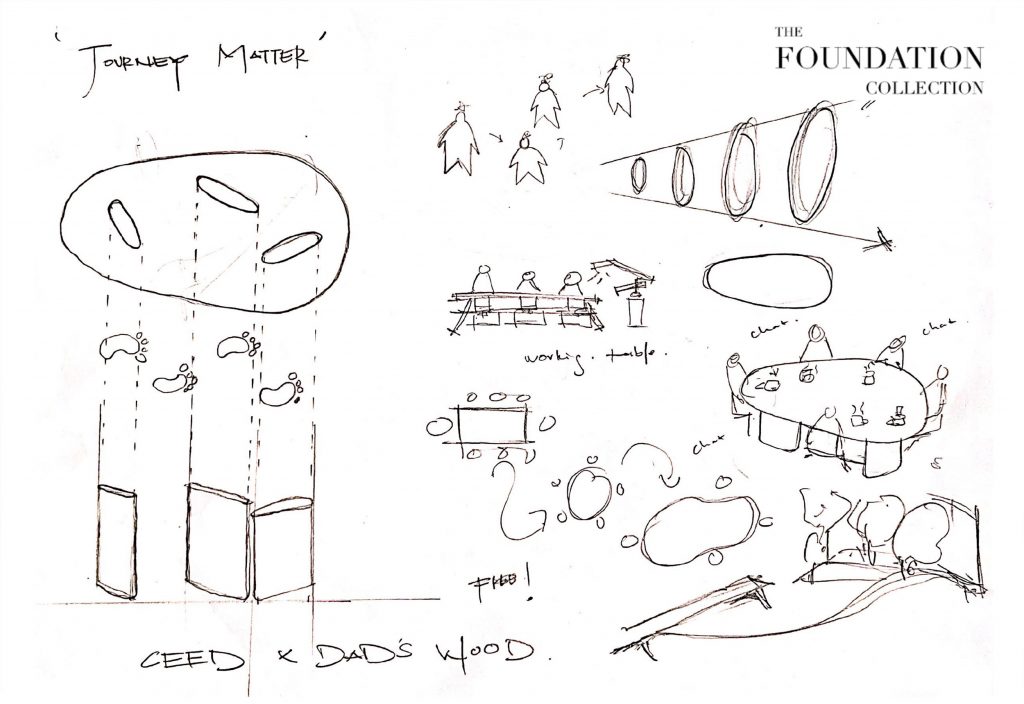 'JOURNEY MATTER'
THE
FOUNDATION
COLLECTION
working. table.
chat.
chat.
chat
FREE!
CEED x DAD'S WOOD.